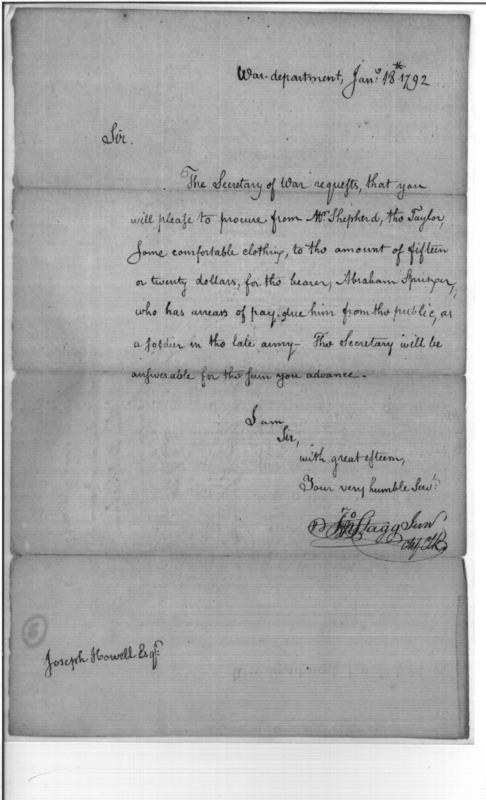 War-department, Jan.y 18th 1792
Sir.
The Secretary of War requests, that you
will please to procure from Mr. Shepherd, the Taylor,
some comfortable clothing, to the amount of fifteen
or twenty dollars, for the bearer, Abraham
who has arrears of pay due him from the public, as
a soldier in the late army— The Secretary will be
answerable for the sum you advance.
I am
Sir,
with great esteem,
Your very humble Servt.
Jno Stagg Junr
Chf. Clk.
Joseph Howell Esqr.